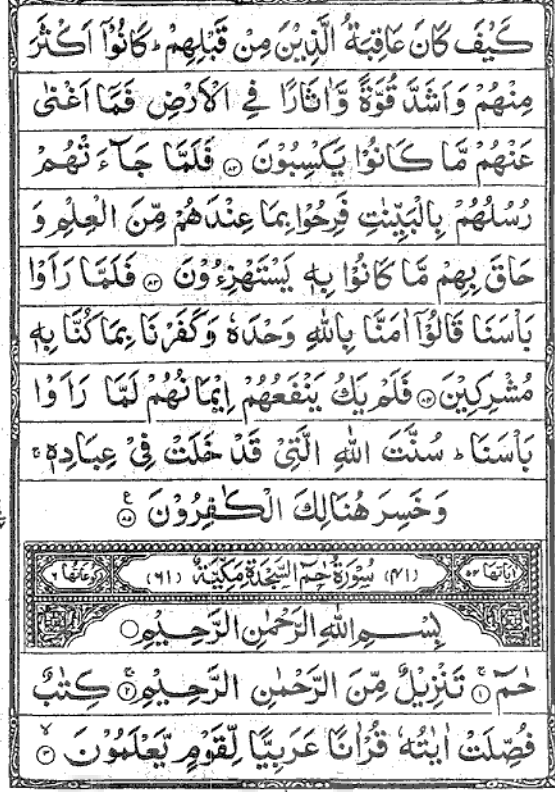 كَيْفَ كَانَ عَاقِبَةُ الَّذِيْنَ مِنْ قَبْلِهِمْ ؕ كَانُوْۤا اَكْثَرَ
مِنْهُمْ وَاَشَدَّ قُوَّةً وَّاٰثَارًا فِي الْاَرْضِ فَمَاۤ اَغْنٰى
عَنْهُمْ مَّا كَانُوْا يَكْسِبُوْنَ ﴿۸۲﴾ فَلَمَّا جَآءَتْهُمْ
رُسُلُهُمْ بِالْبَيِّنٰتِ فَرِحُوْا بِمَا عِنْدَهُمْ مِّنَ الْعِلْمِ وَ
حَاقَ بِهِمْ مَّا كَانُوْا بِهٖ يَسْتَهْزِءُوْنَ ﴿۸۳﴾ فَلَمَّا رَاَوْا
بَاْسَنَا قَالُوْۤا اٰمَنَّا بِاللّٰهِ وَحْدَهٗ وَكَفَرْنَا بِمَا كُنَّا بِهٖ
مُشْرِكِيْنَ ﴿۸۴﴾ فَلَمْ يَكُ يَنْفَعُهُمْ اِيْمَانُهُمْ لَمَّا رَاَوْا
بَاْسَنَا ؕ سُنَّتَ اللّٰهِ الَّتِيْ قَدْ خَلَتْ فِيْ عِبَادِهٖ ۚ
وَخَسِرَ هُنَالِكَ الْكٰفِرُوْنَ ﴿۸۵﴾
اٰيَاتُهَا ۵۴ (۴۱) سُوْرَةُ حٰمٓ السَّجْدَةِ مَكِّيَّةٌ (۶۱) رُكُوْعَاتُهَا ۶
بِسْمِ اللّٰهِ الرَّحْمٰنِ الرَّحِيْمِ
حٰمٓ ﴿۱﴾ ۚ تَنْزِيْلٌ مِّنَ الرَّحْمٰنِ الرَّحِيْمِ ﴿۲﴾ ۚ كِتٰبٌ
فُصِّلَتْ اٰيٰتُهٗ قُرْاٰنًا عَرَبِيًّا لِّقَوْمٍ يَّعْلَمُوْنَ ﴿۳﴾ ۙ